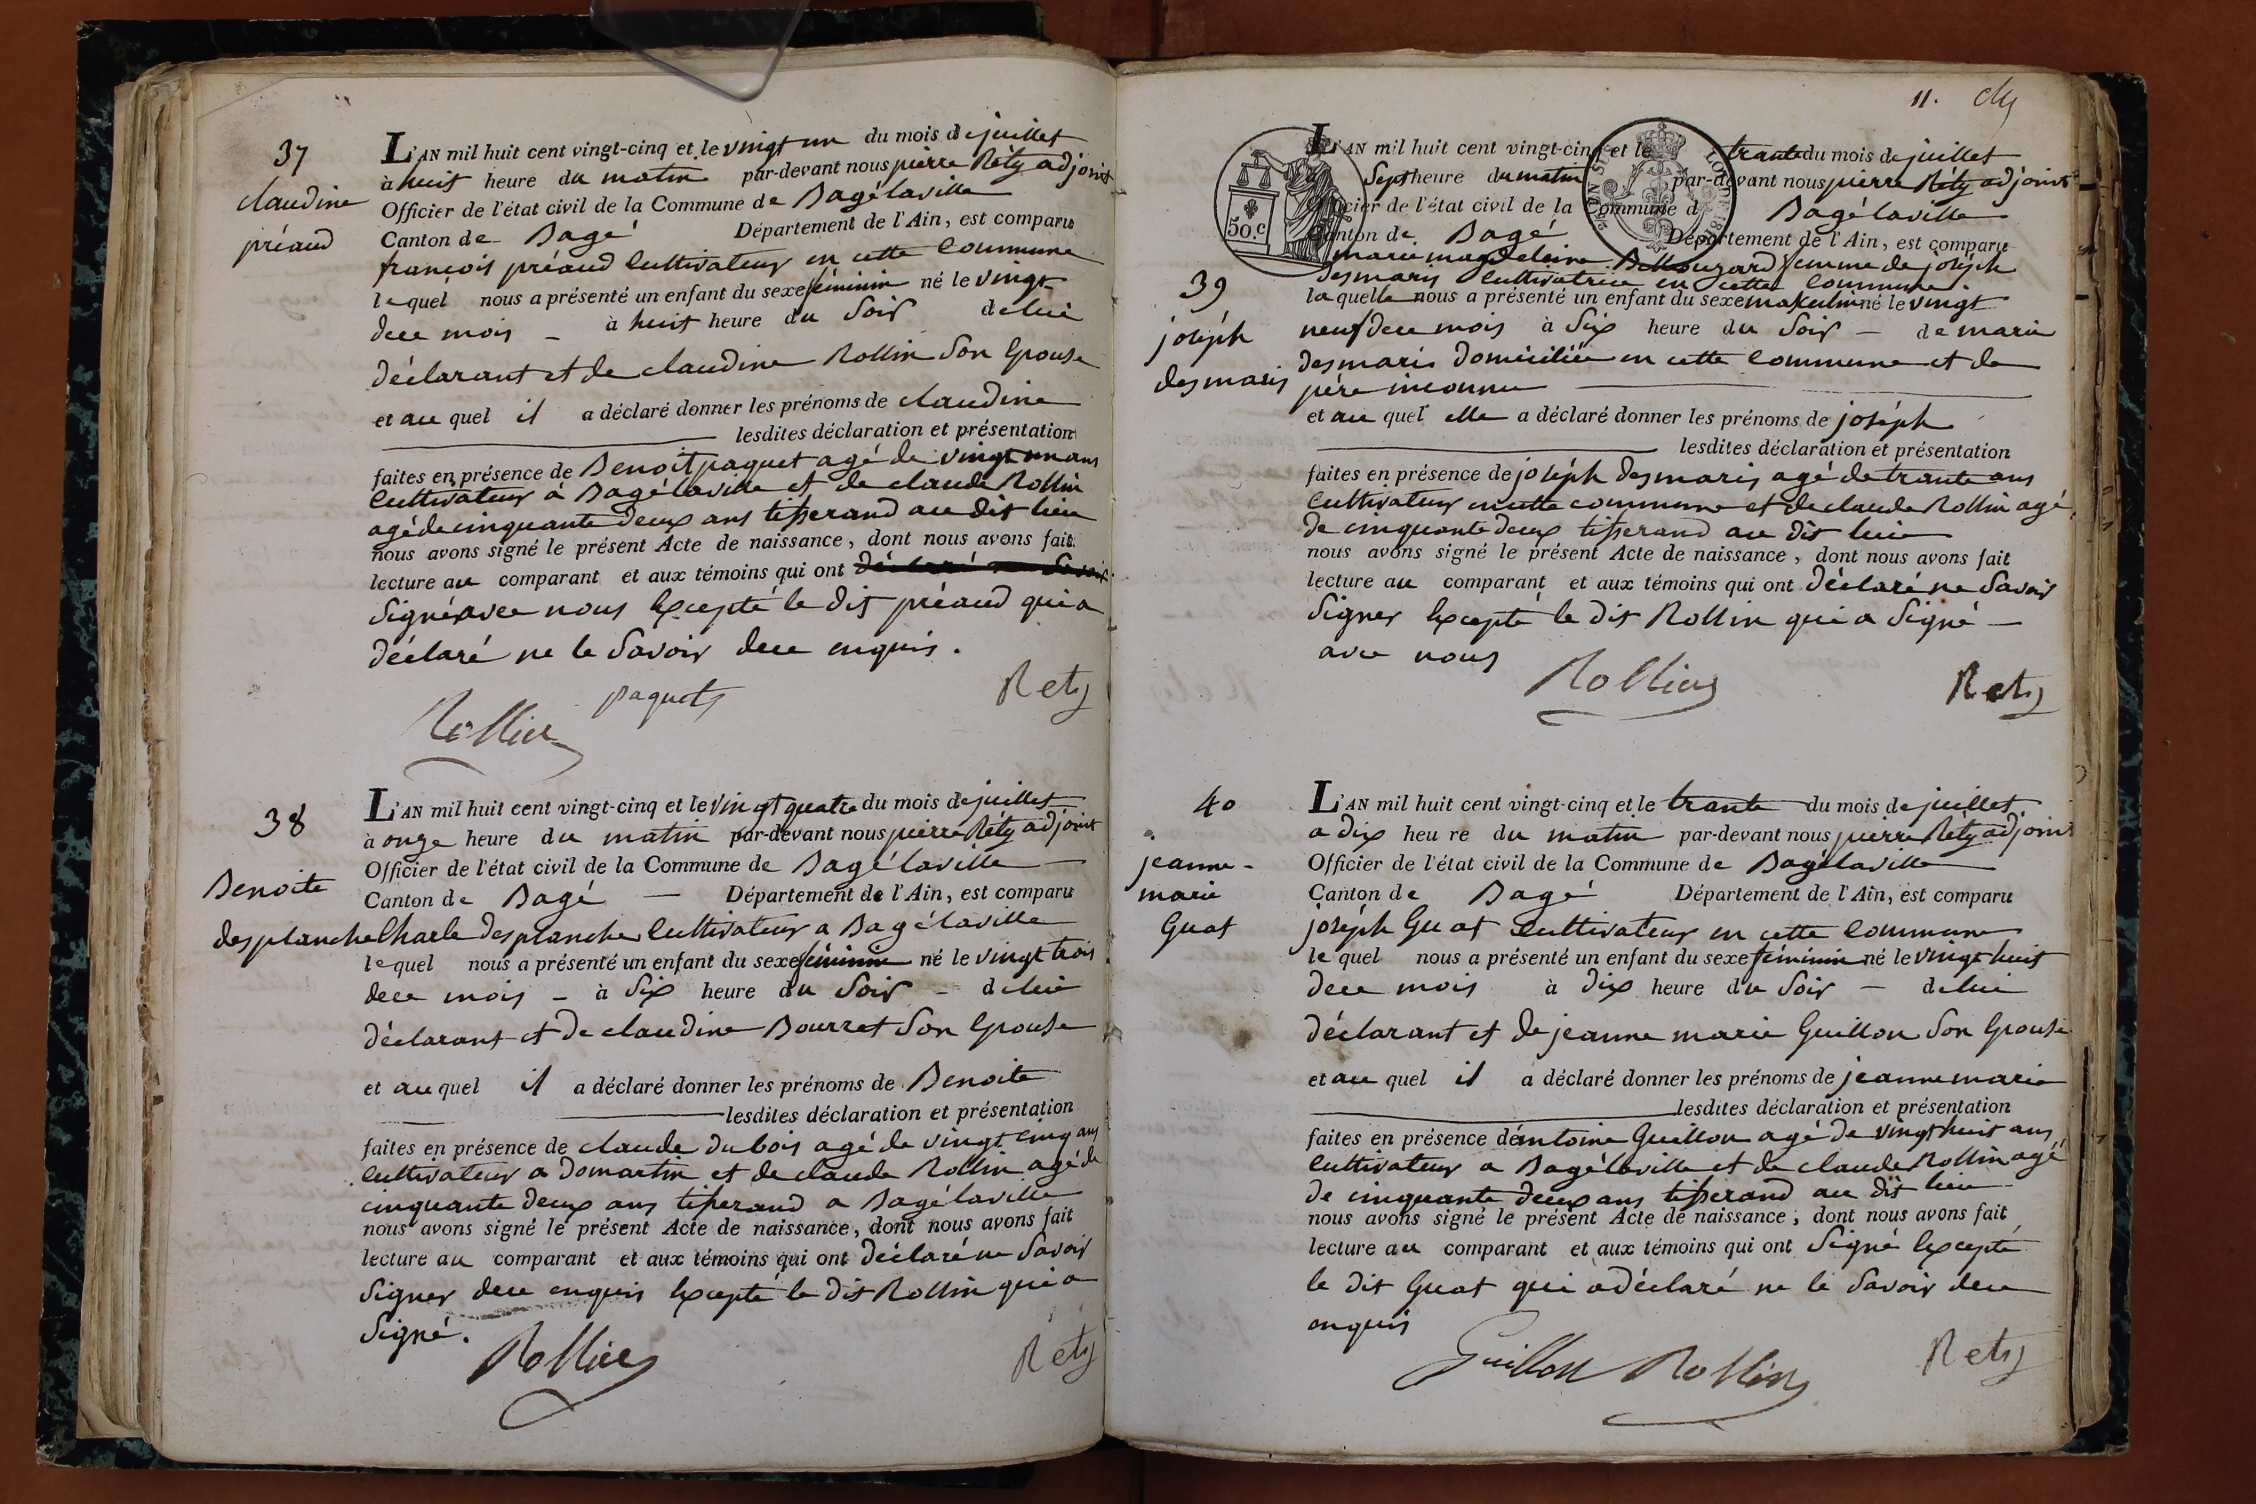 37
claudine
préaud
L'AN mil huit cent vingt-cinq et le vingt un du mois de juillet
à huit heure du matin par-devant nous pierre Réty adjoint
Officier de l'état civil de la Commune de Bagélaville
Canton de Bagé Département de l'Ain, est comparu
françois préaud Cultivateur en cette Commune
lequel nous a présenté un enfant du sexe féminin né le vingt
dece mois à huit heure du Soir de lui
déclarant et de claudine Rollin Son Epouse
et au quel il a déclaré donner les prénoms de claudine
lesdites déclaration et présentation
faites en présence de Benoit paquet agé de vingt un ans
Cultivateur à Bagélaville et de claude Rollin
agé de cinquante deux ans tisserand au dit lieu
nous avons signé le présent Acte de naissance, dont nous avons fait
lecture au comparant et aux témoins qui ont
Signé avec nous Excepté le dit préaud qui a
déclaré ne le Savoir dece enquis.
Rollin paquet Rety
38
Benoite
desplanche
L'AN mil huit cent vingt-cinq et le vingt quatre du mois de juillet
à onze heure du matin par-devant nous pierre Réty adjoint
Officier de l'état civil de la Commune de Bagélaville
Canton de Bagé Département de l'Ain, est comparu
Charle desplanche Cultivateur a Bagélaville
lequel nous a présenté un enfant du sexe féminin né le vingt trois
dece mois à Six heure du Soir de lui
déclarant et de claudine Bourret Son Epouse
et au quel il a déclaré donner les prénoms de Benoite
lesdites déclaration et présentation
faites en présence de claude dubois agé de vingt cinq ans
Cultivateur a domartin et de claude Rollin agé de
cinquante deux ans tisserand a Bagélaville
nous avons signé le présent Acte de naissance, dont nous avons fait
lecture au comparant et aux témoins qui ont déclaré ne Savoir
Signer dece enquis Excepté le dit Rollin qui a
Signé.
Rollin Rety
11.
50.C
39
joséph
desmaris
L'AN mil huit cent vingt-cinq et le trante du mois de juillet
à Sept heure du matin par-devant nous pierre Réty adjoint
Officier de l'état civil de la Commune d Bagélaville
Canton de Bagé Département de l'Ain, est comparu
marie magdeleine femme de joséph
desmaris Cultivatrice en cette Commune.
laquelle nous a présenté un enfant du sexe maskulin né le vingt
neuf dece mois à Six heure du Soir de marie
desmaris domiciliée en cette Commune et de
père inconnu
et au quel elle a déclaré donner les prénoms de joséph
lesdites déclaration et présentation
faites en présence de joséph desmaris agé de trante ans
Cultivateur en cette commune et de claude Rollin agé
de cinquante deux tisserand au dit lieu
nous avons signé le présent Acte de naissance, dont nous avons fait
lecture au comparant et aux témoins qui ont déclaré ne Savoir
Signer Excepté le dit Rollin qui a Signé
avec nous
Rollin Rety
40
jeanne-
marie
Guat
L'AN mil huit cent vingt-cinq et le trante du mois de juillet
a dix heure du matin par-devant nous pierre Réty adjoint
Officier de l'état civil de la Commune de Bagélaville
Canton de Bagé Département de l'Ain, est comparu
joséph Guat Cultivateur en cette Commune
lequel nous a présenté un enfant du sexe féminin né le vingt huit
dece mois à dix heure du Soir de lui
déclarant et de jeanne marie Guillon Son Epouse
et au quel il a déclaré donner les prénoms de jeanne marie
lesdites déclaration et présentation
faites en présence d'antoine Guillon agé de vingt huit ans
Cultivateur a Bagélaville et de claude Rollin agé
de cinquante deux ans tisserand au dit lieu
nous avons signé le présent Acte de naissance, dont nous avons fait
lecture au comparant et aux témoins qui ont Signé Excepté
le dit Guat qui a déclaré ne le Savoir dece
enquis
Guillon Rollin Rety